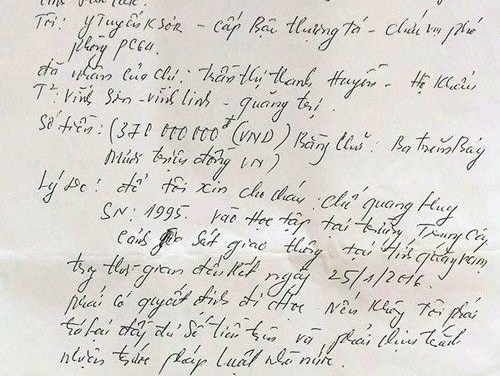 Tôi: Y Tuyến KSơR - cấp Bậc thượng tá - chức vụ phó
phòng PC64.
đã nhận của chị: Trần thị thanh Huyền - Hộ khẩu
T²: Vĩnh Sơn - vĩnh linh - quảng trị.
Số tiền: (370 000 000đ (VND) Bằng chữ: Ba trăm Bảy
mươi triệu đồng VN)
Lý do: để tôi xin cho cháu: chế quang Huy
SN: 1995. vào Học tập tại trường Trung Cấp
cảnh sát giao thông tại tỉnh quảng nam
thời gian đến hết ngày 25/1/2016.
phải có quyết định đi Học. Nếu Không tôi phải
trả lại đầy đủ số tiền trên và phải chịu trách
nhiệm trước pháp luật nhà nước.